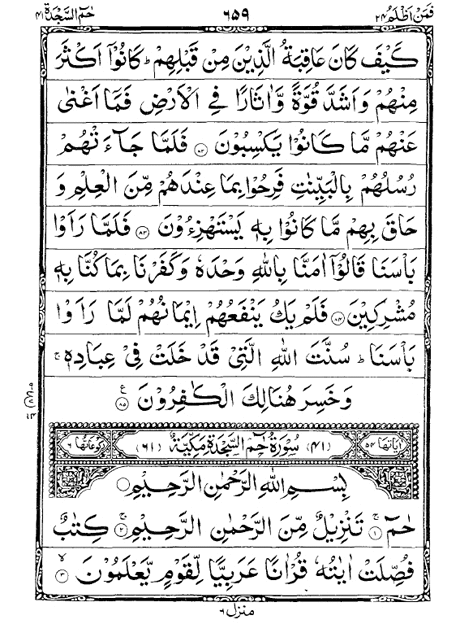 فمن اظلم ٢٤
٦٥٩
حٰم السجدة ٤١
كَيْفَ كَانَ عَاقِبَةُ الَّذِيْنَ مِنْ قَبْلِهِمْ ؕ كَانُوْۤا اَكْثَرَ
مِنْهُمْ وَاَشَدَّ قُوَّةً وَّاٰثَارًا فِي الْاَرْضِ فَمَاۤ اَغْنٰى
عَنْهُمْ مَّا كَانُوْا يَكْسِبُوْنَ ﴿۸۲﴾ فَلَمَّا جَآءَتْهُمْ
رُسُلُهُمْ بِالْبَيِّنٰتِ فَرِحُوْا بِمَا عِنْدَهُمْ مِّنَ الْعِلْمِ وَ
حَاقَ بِهِمْ مَّا كَانُوْا بِهٖ يَسْتَهْزِءُوْنَ ﴿۸۳﴾ فَلَمَّا رَاَوْا
بَاْسَنَا قَالُوْۤا اٰمَنَّا بِاللّٰهِ وَحْدَهٗ وَكَفَرْنَا بِمَا كُنَّا بِهٖ
مُشْرِكِيْنَ ﴿۸۴﴾ فَلَمْ يَكُ يَنْفَعُهُمْ اِيْمَانُهُمْ لَمَّا رَاَوْا
بَاْسَنَا ؕ سُنَّتَ اللّٰهِ الَّتِيْ قَدْ خَلَتْ فِيْ عِبَادِهٖ ۚ
وَخَسِرَ هُنَالِكَ الْكٰفِرُوْنَ ﴿۸۵﴾ ع
اٰياتها ٥٤ (٤١) سُوْرَةُ حٰمٓ السَّجْدَةِ مَكِّيَّةٌ (٦١) ركوعاتها ٦
بِسْمِ اللّٰهِ الرَّحْمٰنِ الرَّحِيْمِ
حٰمٓ ﴿۱﴾ ۚ تَنْزِيْلٌ مِّنَ الرَّحْمٰنِ الرَّحِيْمِ ﴿۲﴾ ۚ كِتٰبٌ
فُصِّلَتْ اٰيٰتُهٗ قُرْاٰنًا عَرَبِيًّا لِّقَوْمٍ يَّعْلَمُوْنَ ﴿۳﴾ ۙ
منزل ٦